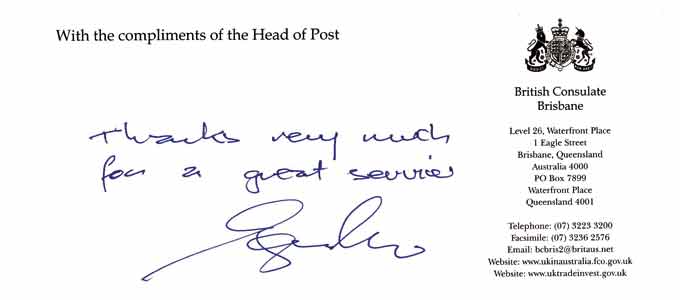 With the compliments of the Head of Post
Thanks very much
for a great service
British Consulate
Brisbane
Level 26, Waterfront Place
1 Eagle Street
Brisbane, Queensland
Australia 4000
PO Box 7899
Waterfront Place
Queensland 4001
Telephone: (07) 3223 3200
Facsimile: (07) 3236 2576
Email: bcbris2@britaus.net
Website: www.ukinaustralia.fco.gov.uk
Website: www.uktradeinvest.gov.uk